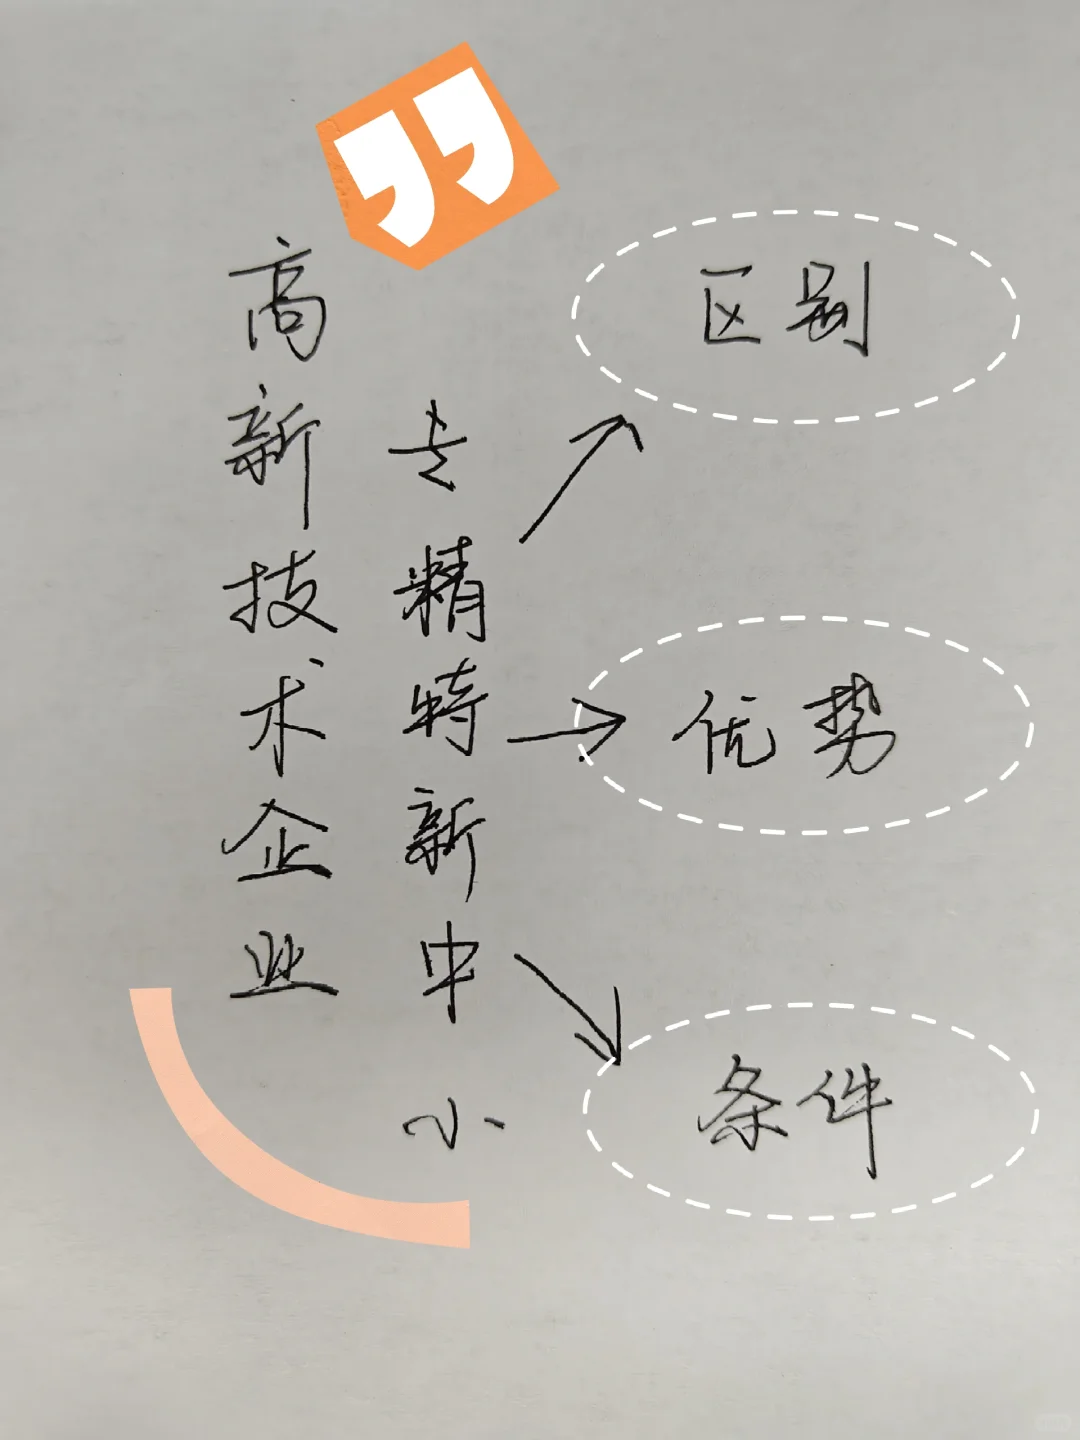 高新技术企业
专精特新中小
区别
优势
条件